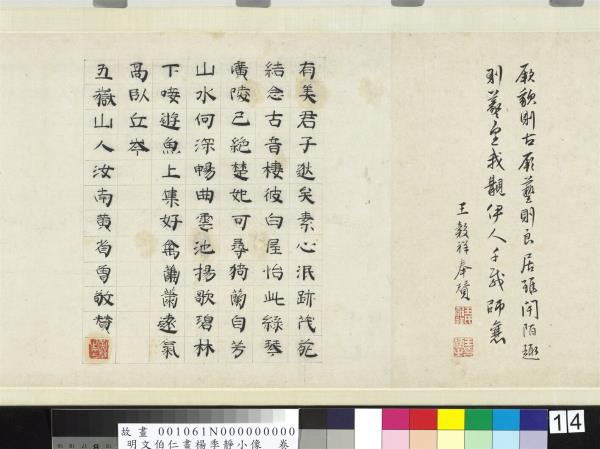 厥貌則古厥藝則良居雖闬陌趣
則羲皇我覯伊人千載師襄
王穀祥奉贊
有美君子逖矣素心泯跡茂苑
結念古音棲彼白屋怡此綠琴
廣陵已絕楚妃可尋猗蘭白芳
山水何深暢曲雲池揚歌碧林
下唼遊魚上集好禽蕭蕭遠氣
高臥丘岑
五嶽山人汝南黃省曾敬贊
14
故畫001061N000000000
明文伯仁畫楊季靜小像 卷